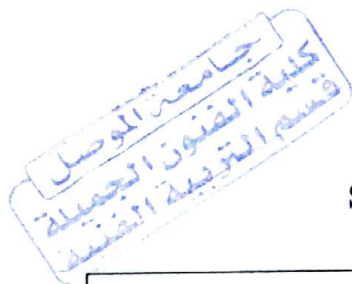 جامعة الموصل
كلية الفنون الجميلة
قسم التربية الفنية
S